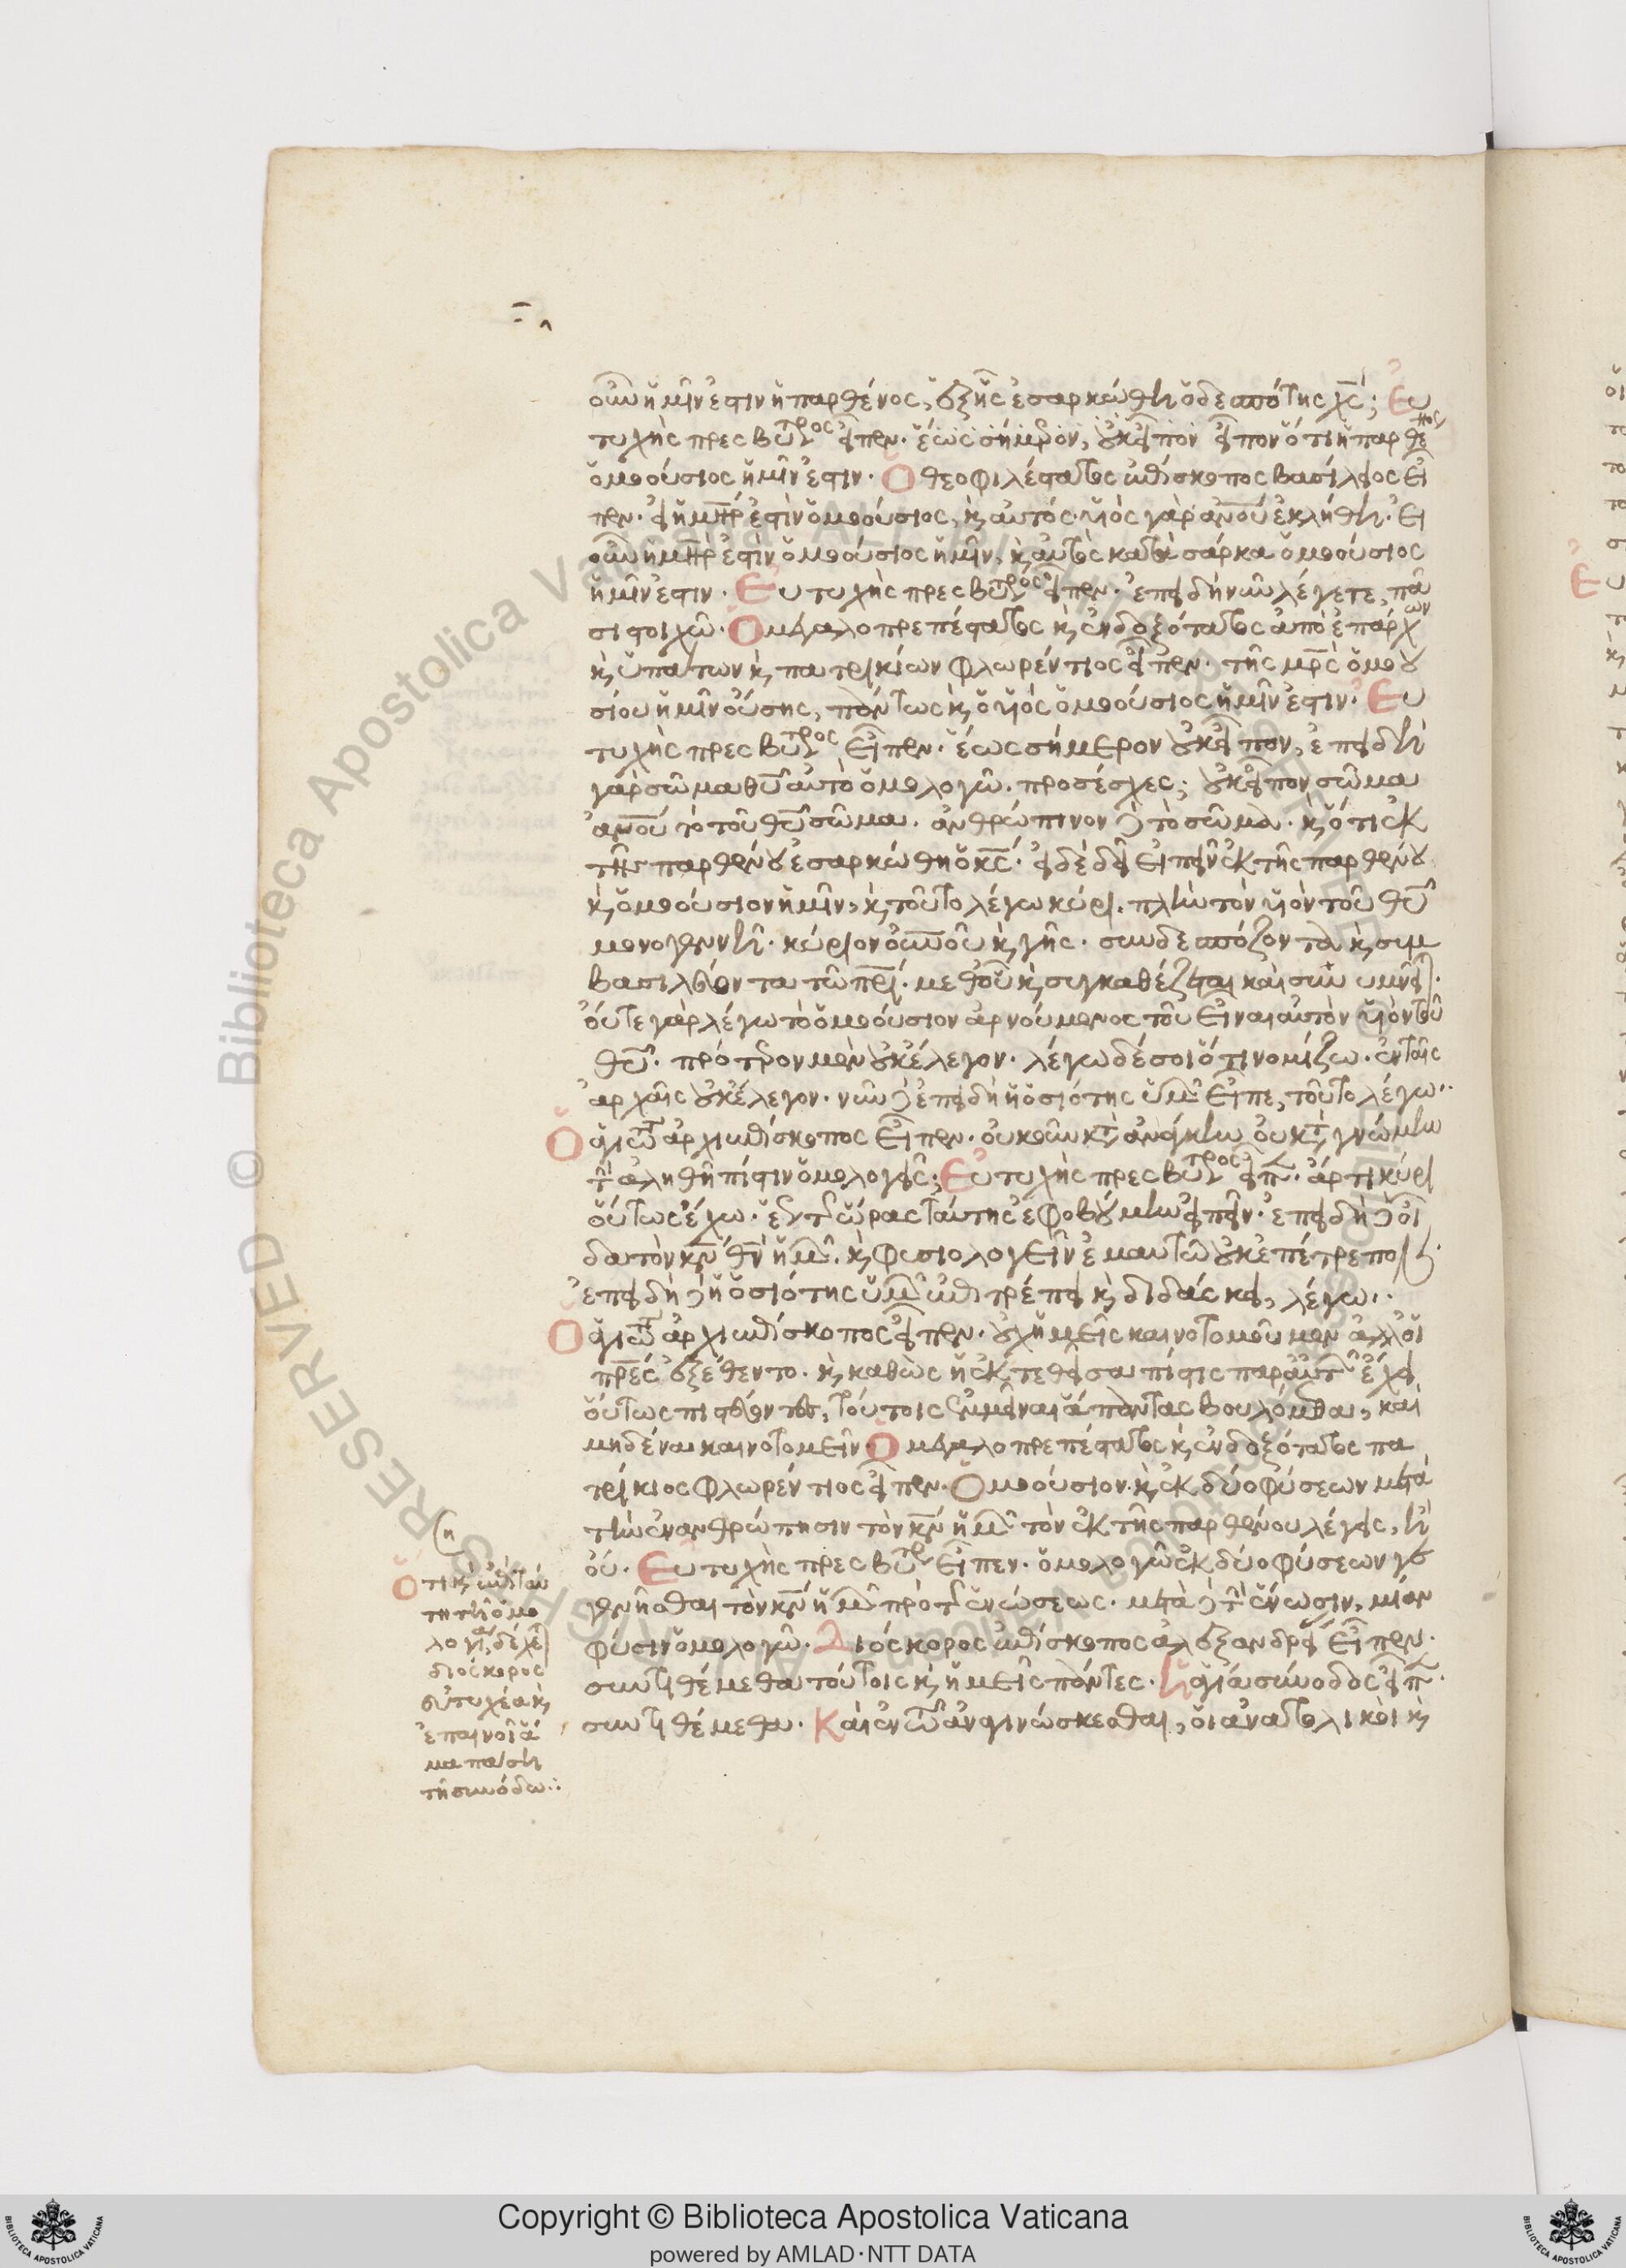 οὖν ἡμῖν ἐστιν ἡ παρθένος, ἐξ ἧς ἐσαρκώθη ὁ δεσπότης χς; Εὐ
τυχὴς πρεσβύτερος εἶπεν· ἕως σήμερον, οὐκ εἶπον εἶπον ὅτι ἡ παρθένος
ὁμοούσιος ἡμῖν ἐστιν· Ὁ θεοφιλέστατος ἐπίσκοπος βασίλειος εἶ
πεν· εἰ ἡ μηρ ἐστὶν ὁμοούσιος, κ αὐτός· υἱὸς γὰρ ανου ἐκλήθη· εἰ
οὖν ἡ μηρ ἐστὶν ὁμοούσιος ἡμῖν, κ αὐτὸς κατὰ σάρκα ὁμοούσιος
ἡμῖν ἐστιν· Εὐτυχὴς πρεσβύτερος εἶπεν· ἐπειδὴ νῦν λέγετε, πᾶ
σι στοιχῶ· Ὁ μεγαλοπρεπέστατος κ ἐνδοξότατος ἀπὸ ἐπάρχων
κ ὑπάτων κ πατρικίων φλωρέντιος εἶπεν· τῆς μρς ὁμοου
σίου ἡμῖν οὔσης, πάντως κ ὁ υἱὸς ὁμοούσιος ἡμῖν ἐστιν· Εὐ
τυχὴς πρεσβύτερος εἶπεν· ἕως σήμερον οὐκ εἶπον, ἐπειδὴ
γὰρ σῶμα θυ αὐτὸ ὁμολογῶ. προσέσχες; οὐκ εἶπον σῶμα
ανου τὸ τοῦ θυ σῶμα. ἀνθρώπινον δὲ τὸ σῶμα. κ ὅτι ἐκ
τῆς παρθένου ἐσαρκώθη ὁ κς· εἰ δὲ δεῖ εἰπεῖν ἐκ τῆς παρθένου
κ ὁμοούσιον ἡμῖν, κ τοῦτο λέγω κύρι. πλὴν τὸν υἱὸν τοῦ θυ
μονογενῆ· κύριον ουνου κ γῆς· συνδεσπόζοντα κ συμ
βασιλεύοντα τῶ πρι· μεθ' οὗ κ συγκαθέζεται καὶ συνυμνεῖται.
οὔτε γὰρ λέγω τὸ ὁμοούσιον ἀρνούμενος τοῦ εἶναι αὐτὸν υἱὸν τοῦ
θυ. πρότερον μὲν οὐκ ἔλεγον. λέγω δέ σοι ὅτι νομίζω. ἐν ταῖς
ἀρχαῖς οὐκ ἔλεγον. νῦν δὲ ἐπειδὴ ἡ ὁσιότης ὑμῶν εἶπε, τοῦτο λέγω..
Ὁ ἁγιώτατος ἀρχιεπίσκοπος εἶπεν· οὐκοῦν κατὰ ἀνάγκην οὐ κατὰ γνώμην
τὴν ἀληθῆ πίστιν ὁμολογεῖς; Εὐτυχὴς πρεσβύτερος εἶπεν· ἄρτι κύρι
οὕτως ἔχω. ἕως τῆς ὥρας ταύτης ἐφοβούμην εἰπεῖν· ἐπειδὴ δὲ οἶ
δα τὸν κν θν ἡμῶν. κ φυσιολογεῖν ἐμαυτῶ οὐκ ἐπέτρεπον.
ἐπειδὴ δὲ ἡ ὁσιότης ὑμῶν ἐπιτρέπει κ διδάσκει, λέγω..
Ὁ ἁγιώτατος ἀρχιεπίσκοπος εἶπεν· οὐχ ἡμεῖς καινοτομοῦμεν ἀλλ' οἱ
πρες ἐξέθεντο. κ καθὼς ἡ ἐκτεθεῖσα πίστις παρ' αὐτῶν ἔχει
οὕτως πιστεύοντες, τούτοις ἐμμεῖναι ἅπαντας βουλόμεθα, καὶ
μηδένα καινοτομεῖν· Ὁ μεγαλοπρεπέστατος κ ἐνδοξότατος πα
τρίκιος φλωρέντιος εἶπεν· Ὁμοούσιον κ ἐκ δύο φύσεων μετὰ
τὴν ἐνανθρώπησιν τὸν κν ἡμῶν τὸν ἐκ τῆς παρθένου λέγεις, ἢ
οὔ· Εὐτυχὴς πρεσβύτερος εἶπεν· ὁμολογῶ ἐκ δύο φύσεων γε
γενῆσθαι τὸν κν ἡμῶν πρὸ τῆς ἑνώσεως· μετὰ δὲ τὴν ἕνωσιν, μίαν
φύσιν ὁμολογῶ· Διόσκορος ἐπίσκοπος ἀλεξανδρείας εἶπεν·
συντιθέμεθα τούτοις κ ἡμεῖς πάντες· Ἡ ἁγία σύνοδος εἶπεν·
συντιθέμεθα· Καὶ ἐν τῶ ἀναγινώσκεσθαι, οἱ ἀνατολικοὶ κ
ση
Ὅτι κ ἐπὶ ταύ
τη τῆ ὁμο
λογία, δέχεται
διόσκορος
εὐτυχέα κ
ἐπαινοῖ ἅ
μα πάση
τῆ συνόδω..:
© Biblioteca Apostolica Vaticana ALL RIGHTS RESERVED
Copyright © Biblioteca Apostolica Vaticana
powered by AMLAD·NTT DATA